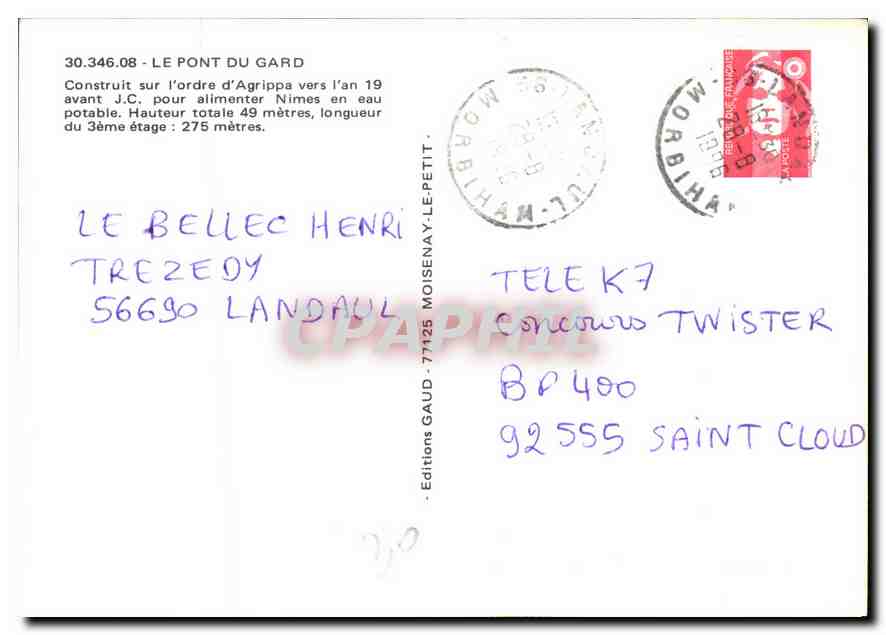 30.346.08 - LE PONT DU GARD
Construit sur l'ordre d'Agrippa vers l'an 19
avant J.C. pour alimenter Nimes en eau
potable. Hauteur totale 49 mètres, longueur
du 3ème étage : 275 mètres.
LE BELLEC HENRI
TREZEDY
56690 LANDAUL
- Editions GAUD - 77125 MOISENAY-LE-PETIT -
56 LANDAUL
MORBIHAN
28-8
REPUBLIQUE FRANÇAISE
LA POSTE
56 LANDA
28-8
1996
MORBIHAN
TELE K7
concours TWISTER
BP 400
92555 SAINT CLOUD
CPAPHIL